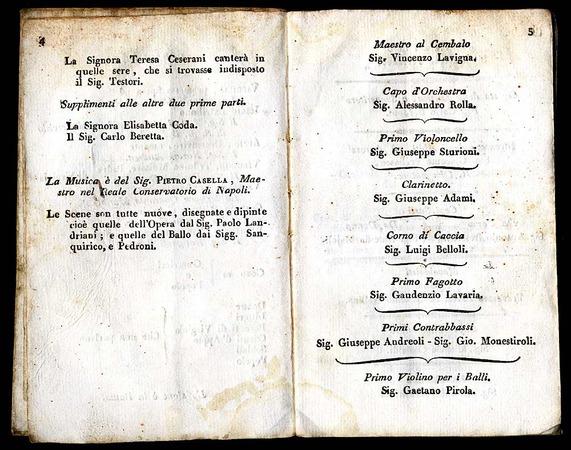 4
La Signora Teresa Ceserani canterà in
quelle sere, che si trovasse indisposto
il Sig. Testori.
Supplimenti alle altre due prime parti.
La Signora Elisabetta Coda.
Il Sig. Carlo Beretta.
La Musica è del Sig. PIETRO CASELLA, Mae-
stro nel Reale Conservatorio di Napoli.
Le Scene son tutte nuove, disegnate e dipinte
cioè quelle dell'Opera dal Sig. Paolo Lan-
driani; e quelle del Ballo dai Sigg. San-
quirico, e Pedroni.
5
Maestro al Cembalo
Sig. Vincenzo Lavigna.
Capo d'Orchestra
Sig. Alessandro Rolla.
Primo Violoncello
Sig. Giuseppe Sturioni.
Clarinetto.
Sig. Giuseppe Adami.
Corno di Caccia
Sig. Luigi Belloli.
Primo Fagotto
Sig. Gaudenzio Lavaria.
Primi Contrabbassi
Sig. Giuseppe Andreoli - Sig. Gio. Monestiroli.
Primo Violino per i Balli.
Sig. Gaetano Pirola.